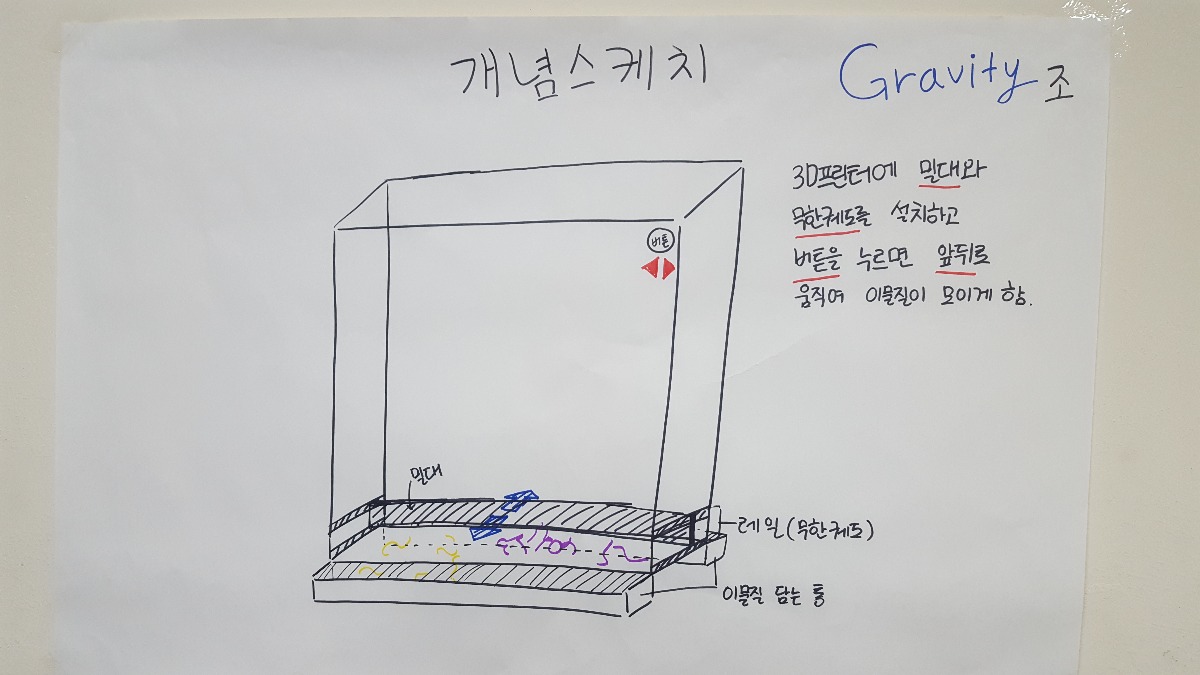 개념스케치
Gravity 조
3D프린터에 밀대와
무한궤도를 설치하고
버튼을 누르면 앞뒤로
움직여 이물질이 모이게 함.
버튼
밀대
레일(무한궤도)
이물질 담는 통